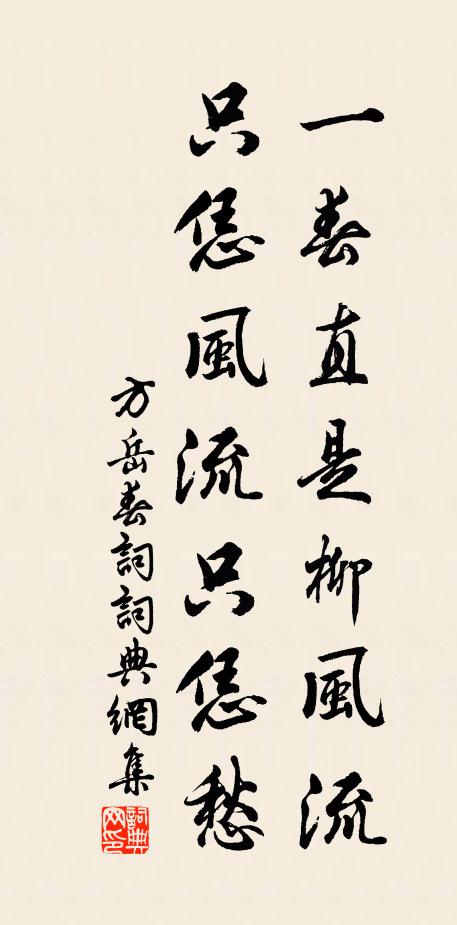 一春直是柳風流
只恁風流只恁愁
方岳春詞詞典網集
詞典
网印